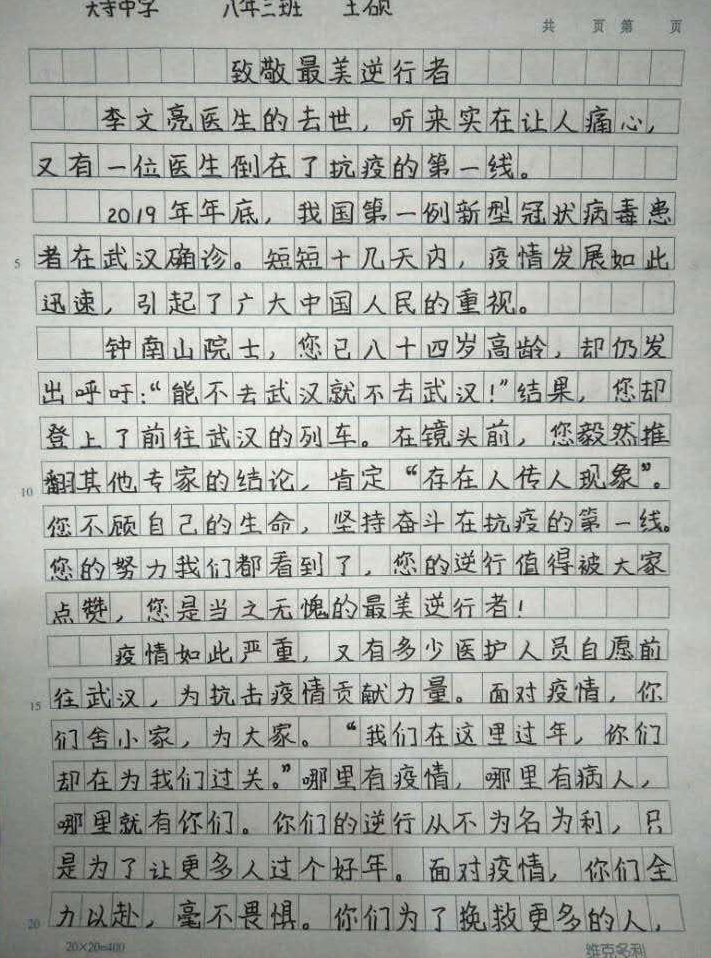 大寺中学 八年三班 王硕
共 页 第 页
致敬最美逆行者
李文亮医生的去世，听来实在让人痛心，
又有一位医生倒在了抗疫的第一线。
2019年年底，我国第一例新型冠状病毒患
5 者在武汉确诊。短短十几天内，疫情发展如此
迅速，引起了广大中国人民的重视。
钟南山院士，您已八十四岁高龄，却仍发
出呼吁：“能不去武汉就不去武汉！”结果，您却
登上了前往武汉的列车。在镜头前，您毅然推
10 翻其他专家的结论，肯定“存在人传人现象”。
您不顾自己的生命，坚持奋斗在抗疫的第一线。
您的努力我们都看到了，您的逆行值得被大家
点赞，您是当之无愧的最美逆行者！
疫情如此严重，又有多少医护人员自愿前
15 往武汉，为抗击疫情贡献力量。面对疫情，你
们舍小家，为大家。“我们在这里过年，你们
却在为我们过关。”哪里有疫情，哪里有病人，
哪里就有你们。你们的逆行从不为名为利，只
是为了让更多人过个好年。面对疫情，你们全
20 力以赴，毫不畏惧。你们为了挽救更多的人，
20×20=400 维克多利